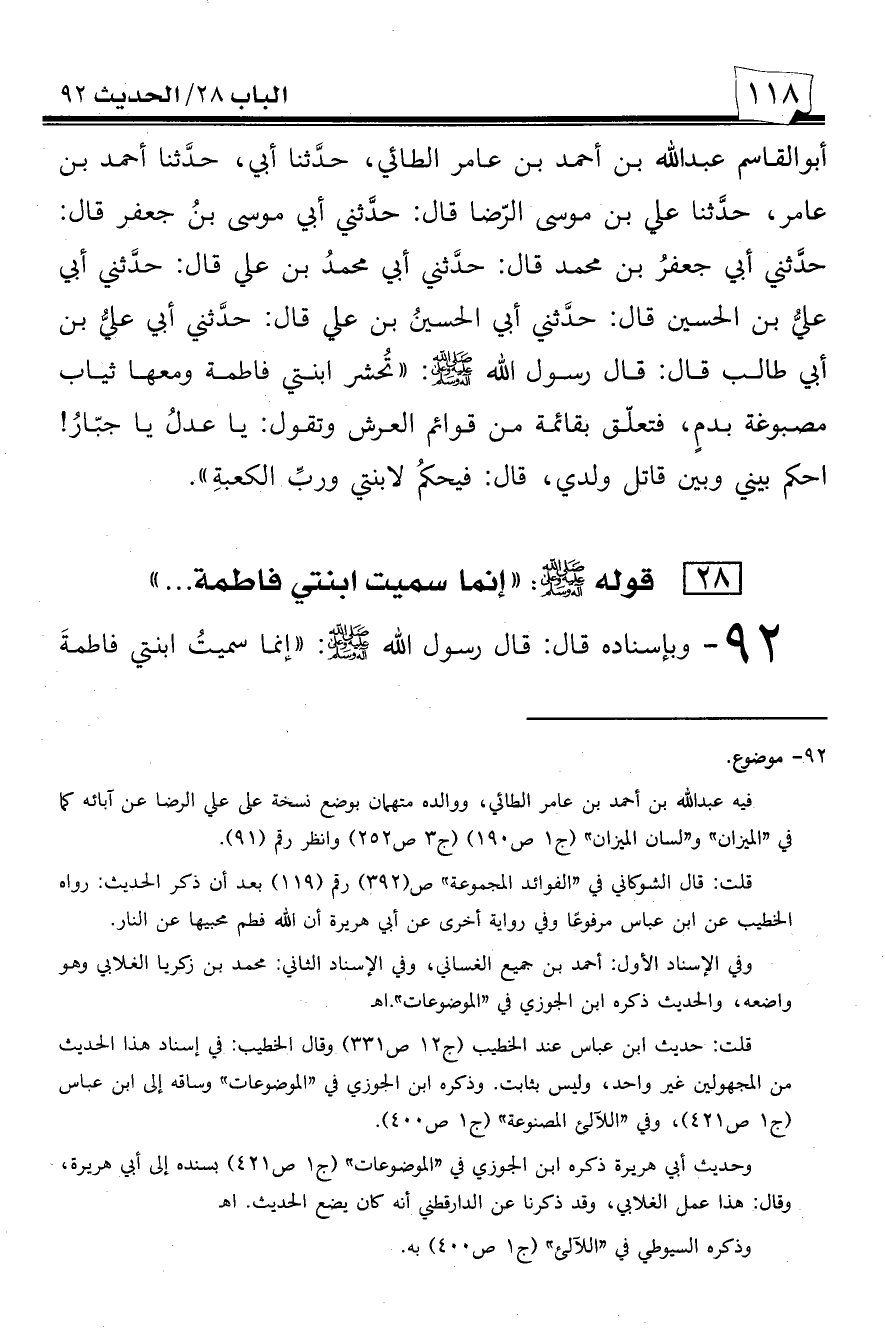 ١١٨ الباب ٢٨/ الحديث ٩٢
أبوالقاسم عبدالله بن أحمد بن عامر الطائي، حدَّثنا أبي، حدَّثنا أحمد بن
عامر، حدَّثنا علي بن موسى الرّضا قال: حدَّثني أبي موسى بنُ جعفر قال:
حدَّثني أبي جعفرُ بن محمد قال: حدَّثني أبي محمدُ بن علي قال: حدَّثني أبي
عليُّ بن الحسين قال: حدَّثني أبي الحسينُ بن علي قال: حدَّثني أبي عليُّ بن
أبي طالب قال: قال رسول الله ﷺ: «تُحشر ابنتي فاطمة ومعها ثياب
مصبوغة بدمٍ، فتعلّق بقائمة من قوائم العرش وتقول: يا عدلُ يا جبّارُ!
احكم بيني وبين قاتل ولدي، قال: فيحكمُ لابنتي وربِّ الكعبةِ».
٢٨ قوله ﷺ: «إنما سميت ابنتي فاطمة...»
٩٢- وبإسناده قال: قال رسول الله ﷺ: «إنما سميتُ ابنتي فاطمةَ
٩٢- موضوع.
فيه عبدالله بن أحمد بن عامر الطائي، ووالده متهمان بوضع نسخة على علي الرضا عن آبائه كما
في "الميزان" و"لسان الميزان" (ج١ ص١٩٠) (ج٣ ص٢٥٢) وانظر رقم (٩١).
قلت: قال الشوكاني في "الفوائد المجموعة" ص(٣٩٢) رقم (١١٩) بعد أن ذكر الحديث: رواه
الخطيب عن ابن عباس مرفوعًا وفي رواية أخرى عن أبي هريرة أن الله فطم محبيها عن النار.
وفي الإسناد الأول: أحمد بن جميع الغساني، وفي الإسناد الثاني: محمد بن زكريا الغلابي وهو
واضعه، والحديث ذكره ابن الجوزي في "الموضوعات".اهـ
قلت: حديث ابن عباس عند الخطيب (ج١٢ ص٣٣١) وقال الخطيب: في إسناد هذا الحديث
من المجهولين غير واحد، وليس بثابت. وذكره ابن الجوزي في "الموضوعات" وساقه إلى ابن عباس
(ج١ ص٤٢١)، وفي "اللآلئ المصنوعة" (ج١ ص٤٠٠).
وحديث أبي هريرة ذكره ابن الجوزي في "الموضوعات" (ج١ ص٤٢١) بسنده إلى أبي هريرة،
وقال: هذا عمل الغلابي، وقد ذكرنا عن الدارقطني أنه كان يضع الحديث. اهـ
وذكره السيوطي في "اللآلئ" (ج١ ص٤٠٠) به.